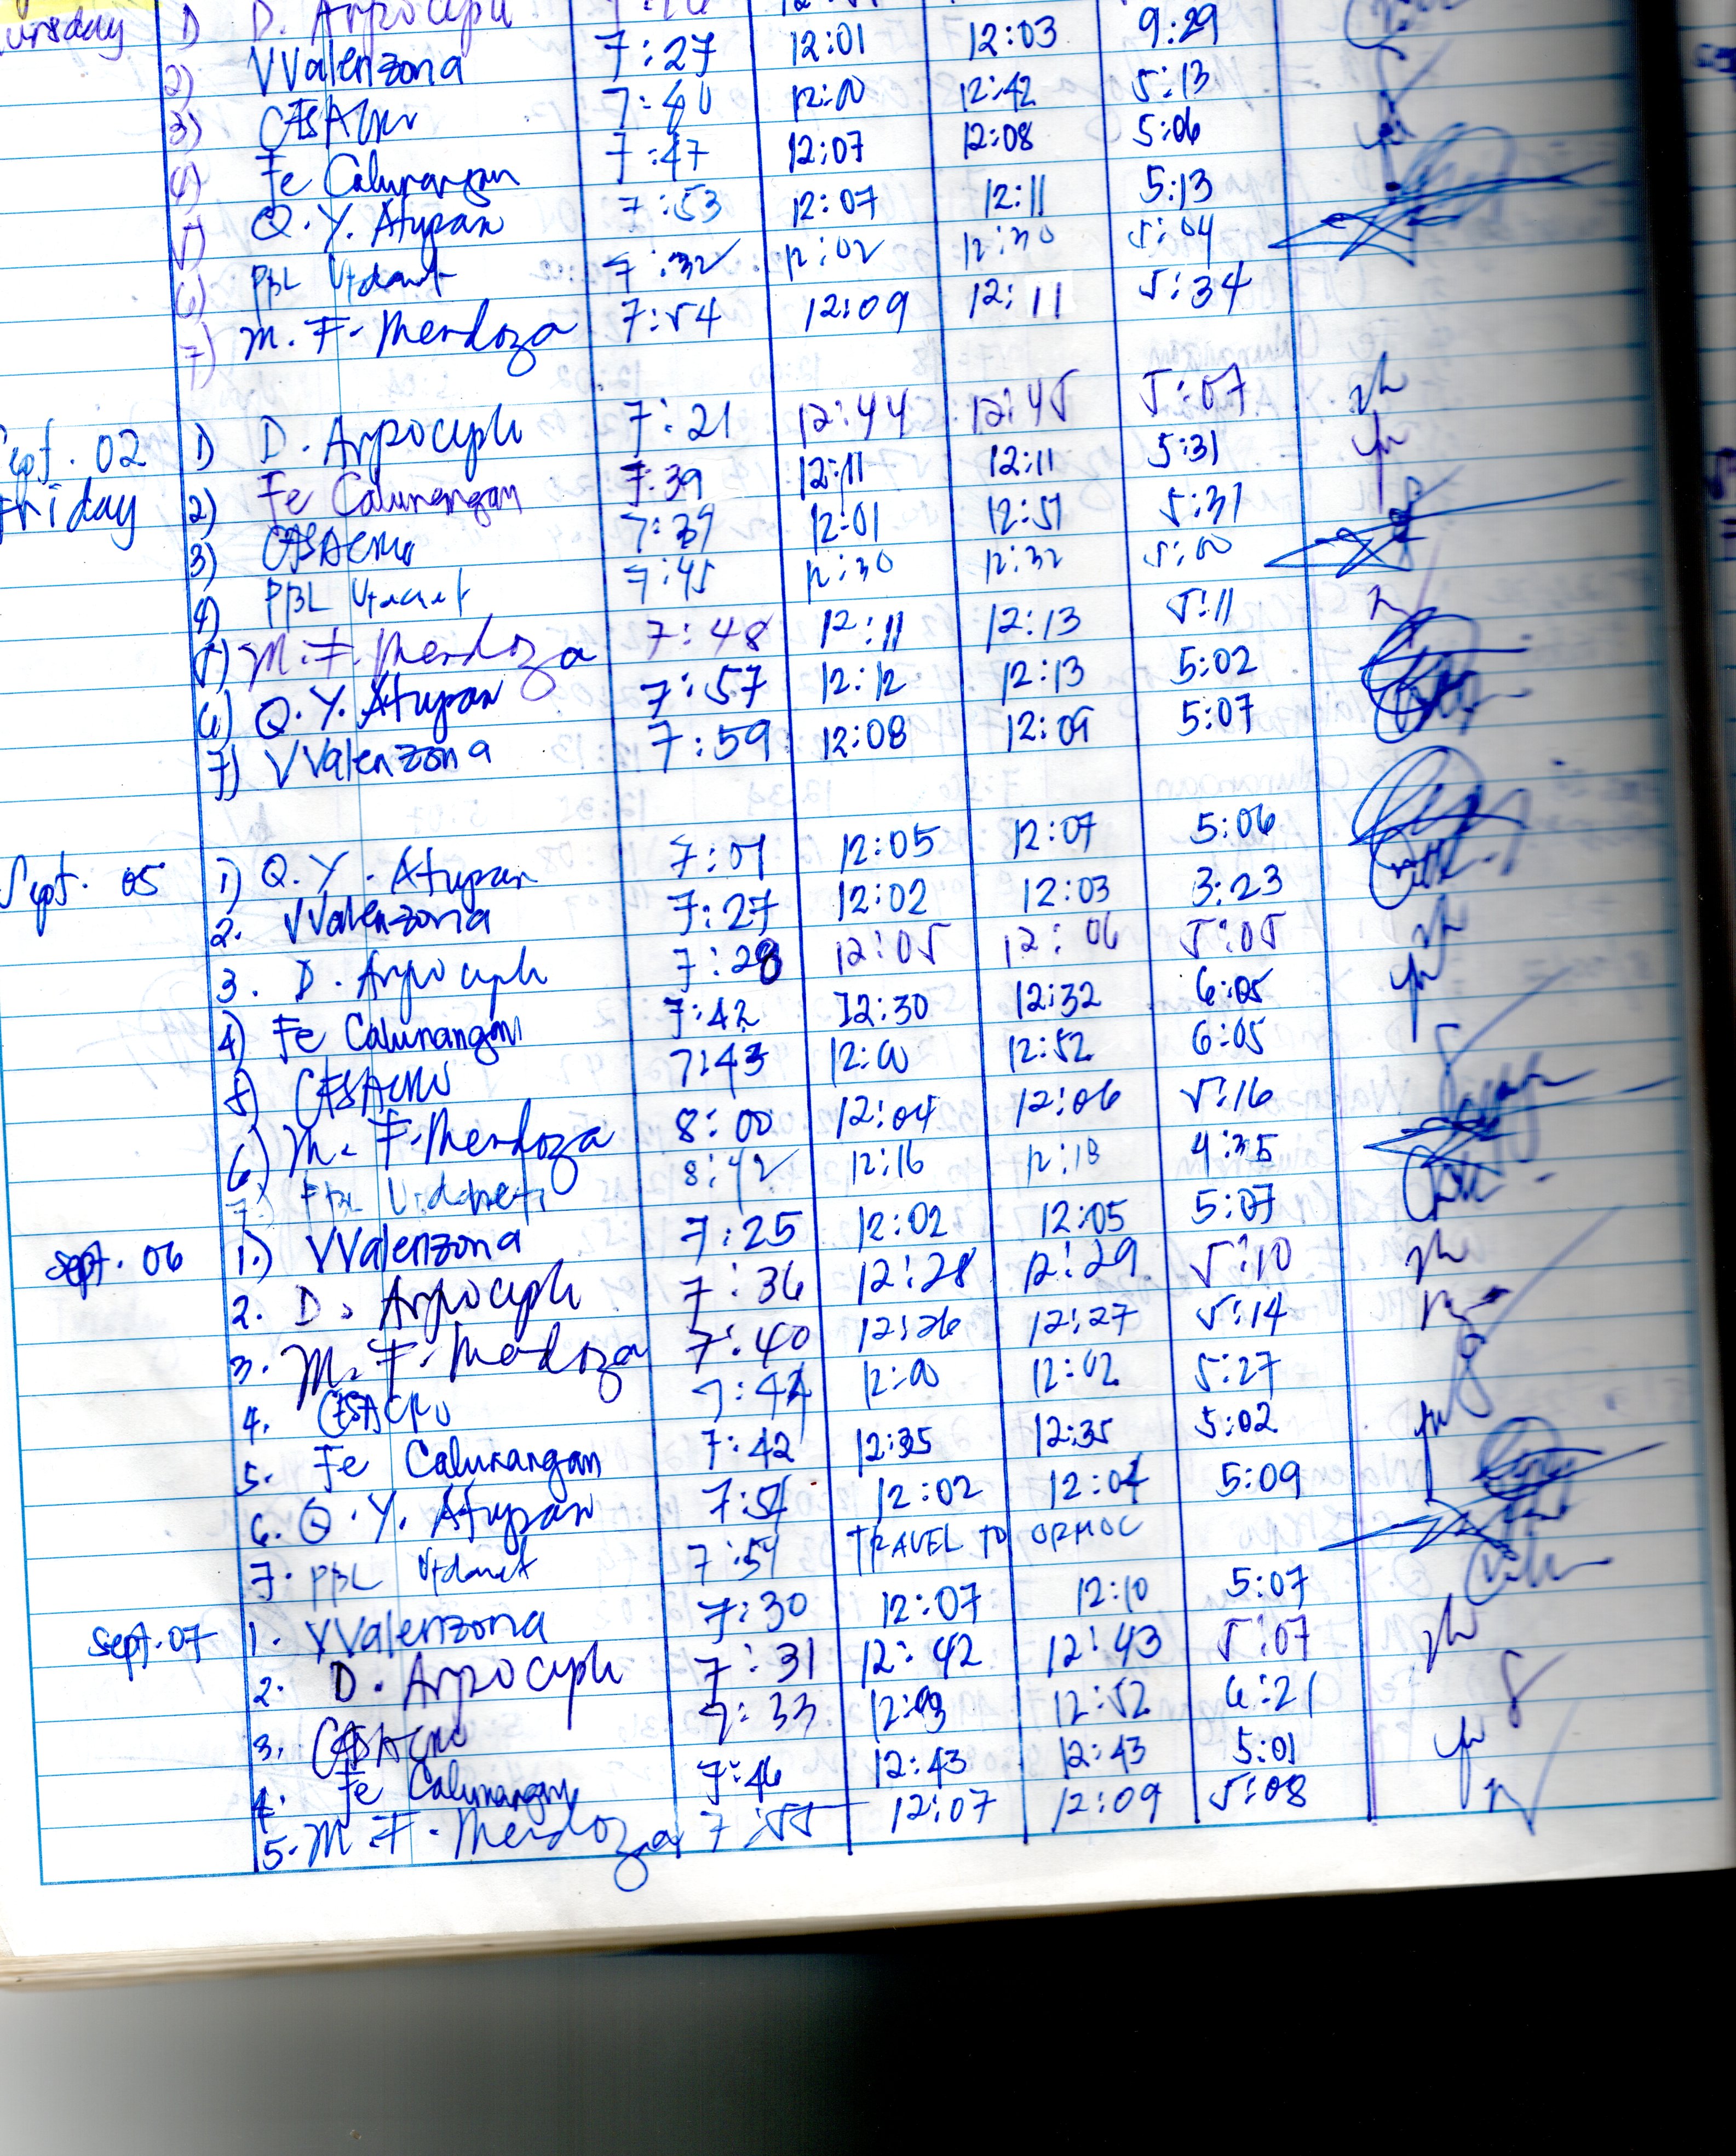 ursday 1) D. Arpoceple
2) VValenzona 7:27 12:01 12:03 9:29
3) 7:40 12:00 12:42 5:13
4) Fe Calunangan 7:47 12:07 12:08 5:06
5) Q. Y. Atupan 7:53 12:07 12:11 5:13
6) PBL 7:32 12:02 12:30 5:04
7) M. F. Mendoza 7:54 12:09 12:11 5:34
Sept. 02 1) D. 7:21 12:44 12:45 5:07
Friday 2) Fe Calunangan 7:39 12:11 12:11 5:31
3) 7:39 12:01 12:51 5:31
4) PBL 7:45 12:30 12:32 5:00
5) M. F. Mendoza 7:48 12:11 12:13 5:11
6) Q. Y. Atupan 7:57 12:12 12:13 5:02
7) VValenzona 7:59 12:08 12:09 5:07
Sept. 05 1) Q. Y. Atupan 7:01 12:05 12:07 5:06
2. VValenzona 7:27 12:02 12:03 3:23
3. D. 7:28 12:05 12:06 5:05
4) Fe Calunangan 7:42 12:30 12:32 6:05
5) 7:43 12:00 12:52 6:05
6) M. F. Mendoza 8:00 12:04 12:06 5:16
7.) PBL 8:42 12:16 12:18 4:35
Sept. 06 1.) VValenzona 7:25 12:02 12:05 5:07
2. D. 7:36 12:28 12:29 5:10
3. M. F. Mendoza 7:40 12:26 12:27 5:14
4. 12:00 12:02 5:27
5. Fe Calunangan 7:42 12:35 12:35 5:02
6. Q. Y. Atupan 7:54 12:02 12:04 5:09
7. PBL 7:54 TRAVEL TO ORMOC
Sept. 07 1. VValenzona 7:30 12:07 12:10 5:07
2. D. 7:31 12:42 12:43 5:07
3. 7:33 12:03 12:52 6:21
4. Fe Calunangan 7:46 12:43 12:43 5:01
5. M. F. Mendoza 7:55 12:07 12:09 5:08